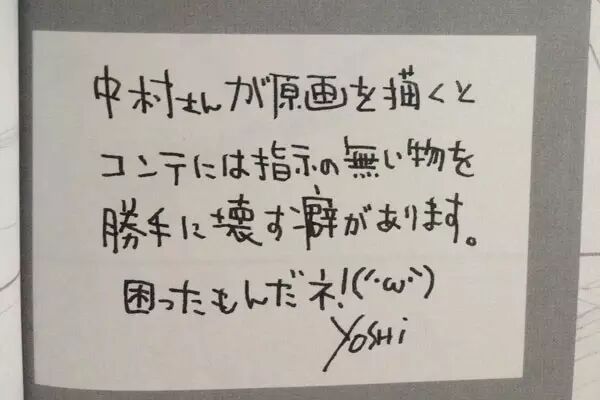 中村さんが原画を描くと
コンテには指示の無い物を
勝手に壊す癖があります。
困ったもんだネ!(´・ω・`)
YOSHi